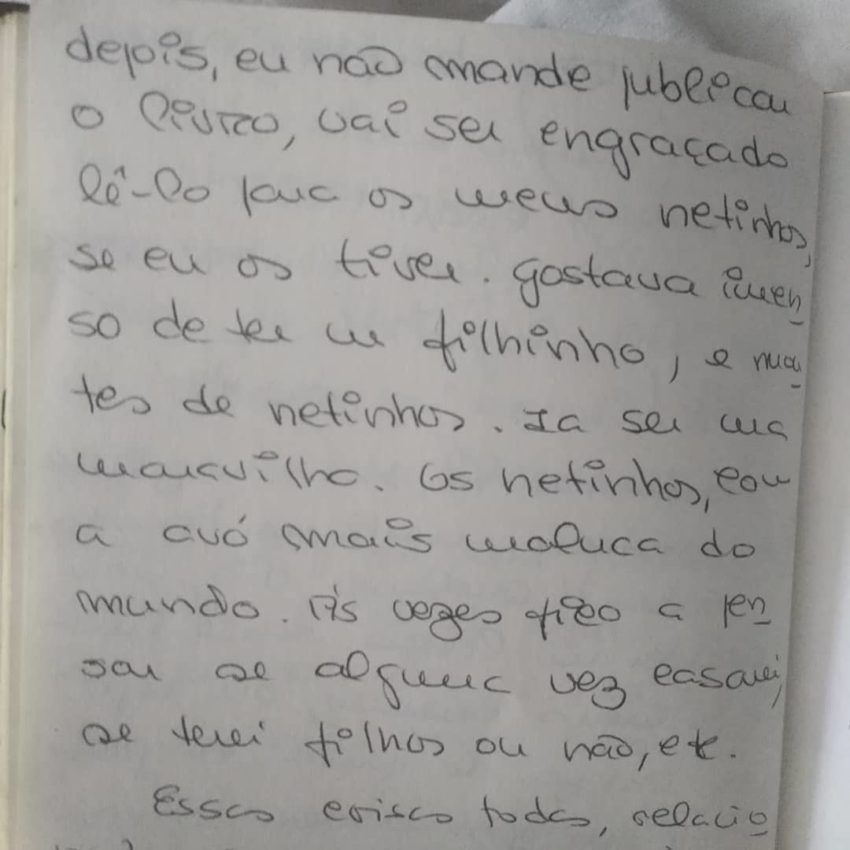 depois, eu não mande publicar
o livro, vai ser engraçado
lê-lo para os meus netinhos,
se eu os tiver. Gostava imen
so de ter um filhinho, e mon
tes de netinhos. Ia ser uma
maravilha. Os netinhos, com
a avó mais maluca do
mundo. Às vezes fico a pen
sar se alguma vez casarei,
se terei filhos ou não, etc.
Essas coisas todas, relacio